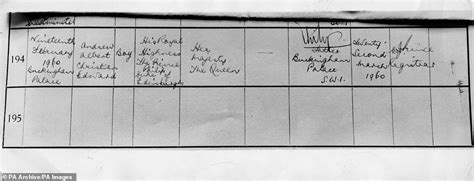 Westminster
194
Nineteenth
February
1960
Buckingham
Palace
Andrew
Albert
Christian
Edward
Boy
His Royal
Highness
The Prince
Philip
Duke of
Edinburgh
Her
Majesty
The Queen
Philip
Father
Buckingham
Palace
S.W.1.
Twenty-
Second
March
1960
Registrar
195
© PA Archive/PA Images